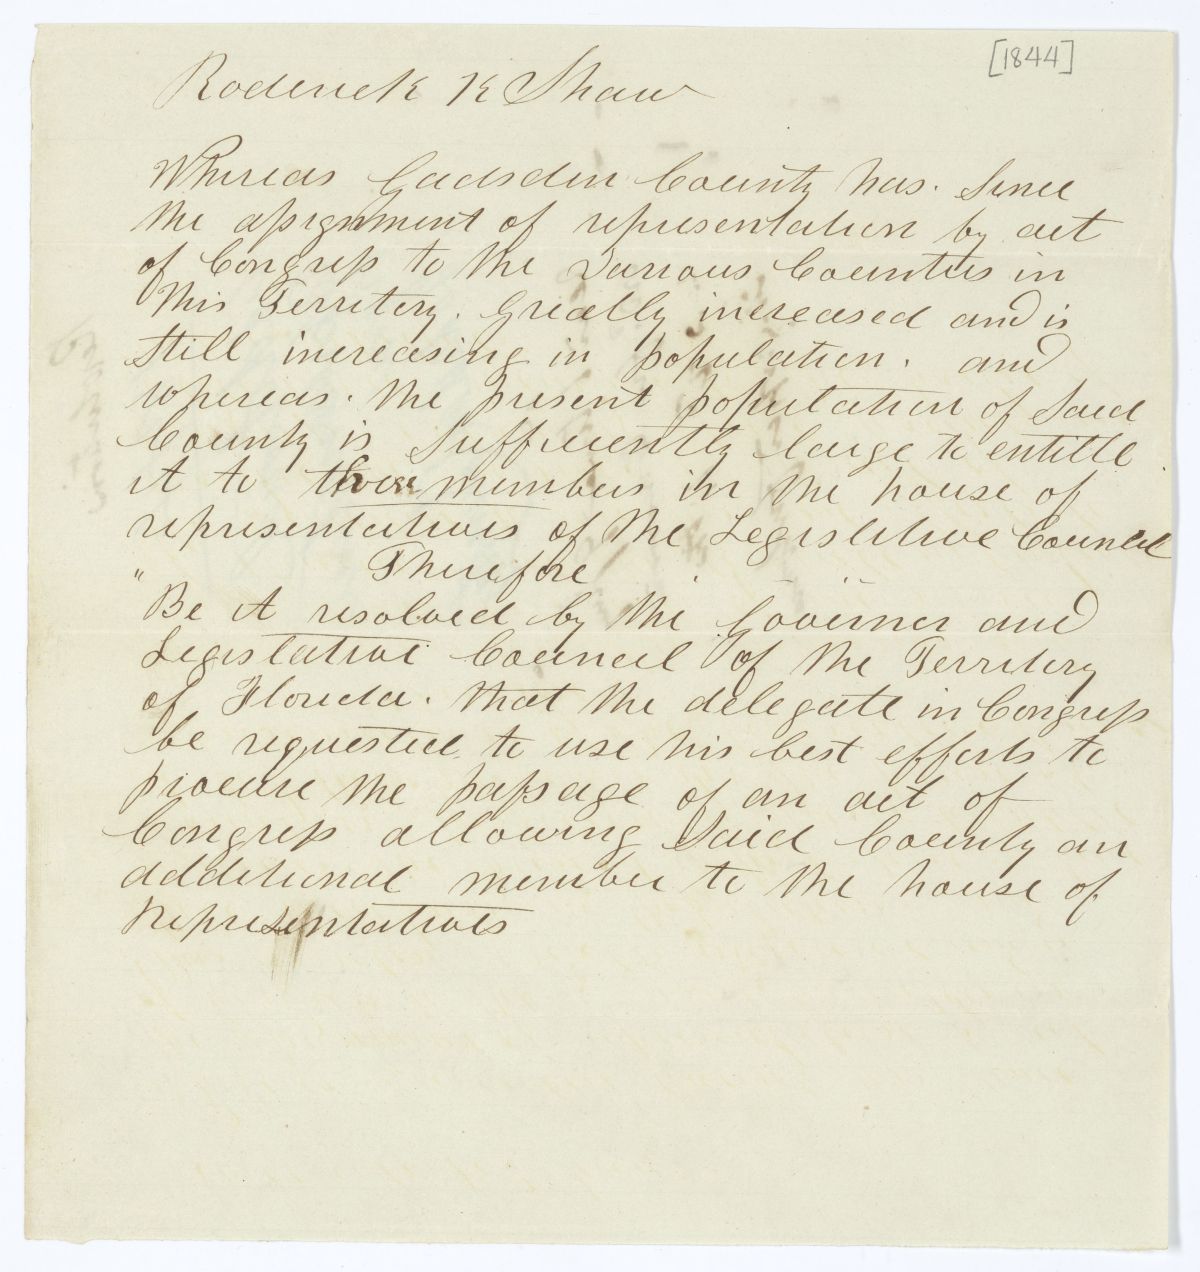 [1844]
Roderick K Shaw
Whereas Gadsden County has. Since
the assignment of representation by act
of Congress to the various Counties in
this Territory. Greatly increased and is
still increasing in population. and
whereas. the present population of Said
County is Sufficiently large to entitle
it to three members in the house of
representatives of the Legislative Council
Therefore
" Be it resolved by the Governer and
Legislative Council of the Territory
of Florida. that the delegate in Congress
be requested to use his best efforts to
procure the passage of an act of
Congress allowing Said County an
additional member to the house of
Representatives